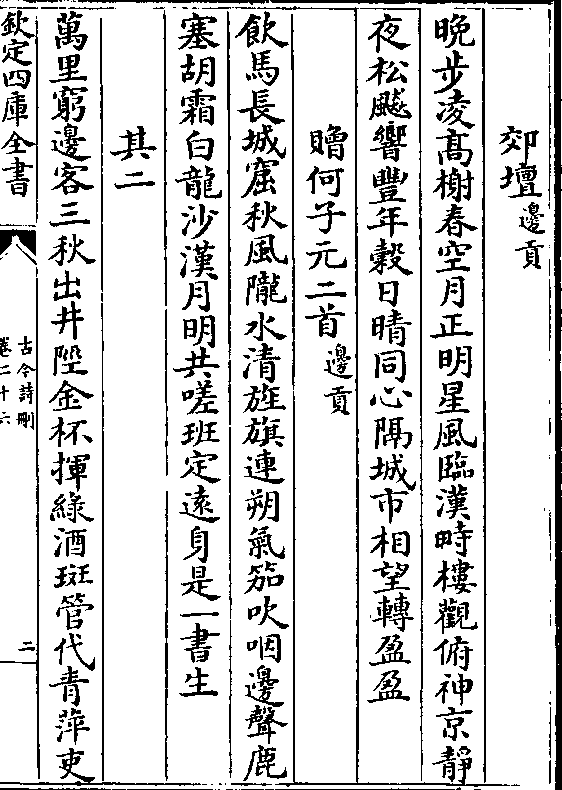 郊壇邊貢
晩步凌髙榭春空月正明星風臨漢畤樓觀俯神京靜
夜松飈響豐年榖日晴同心隔城市相望轉盈盈
贈何子元二首邊貢
飲馬長城窟秋風隴水清旌旗連朔氣笳吹咽邊聲鹿
塞胡霜白龍沙漢月明共嗟班定遠身是一書生
其二
萬里窮邊客三秋出井陘金杯揮綠酒斑管代青萍吏
欽定四庫全書
古今詩刪
卷二十六
二